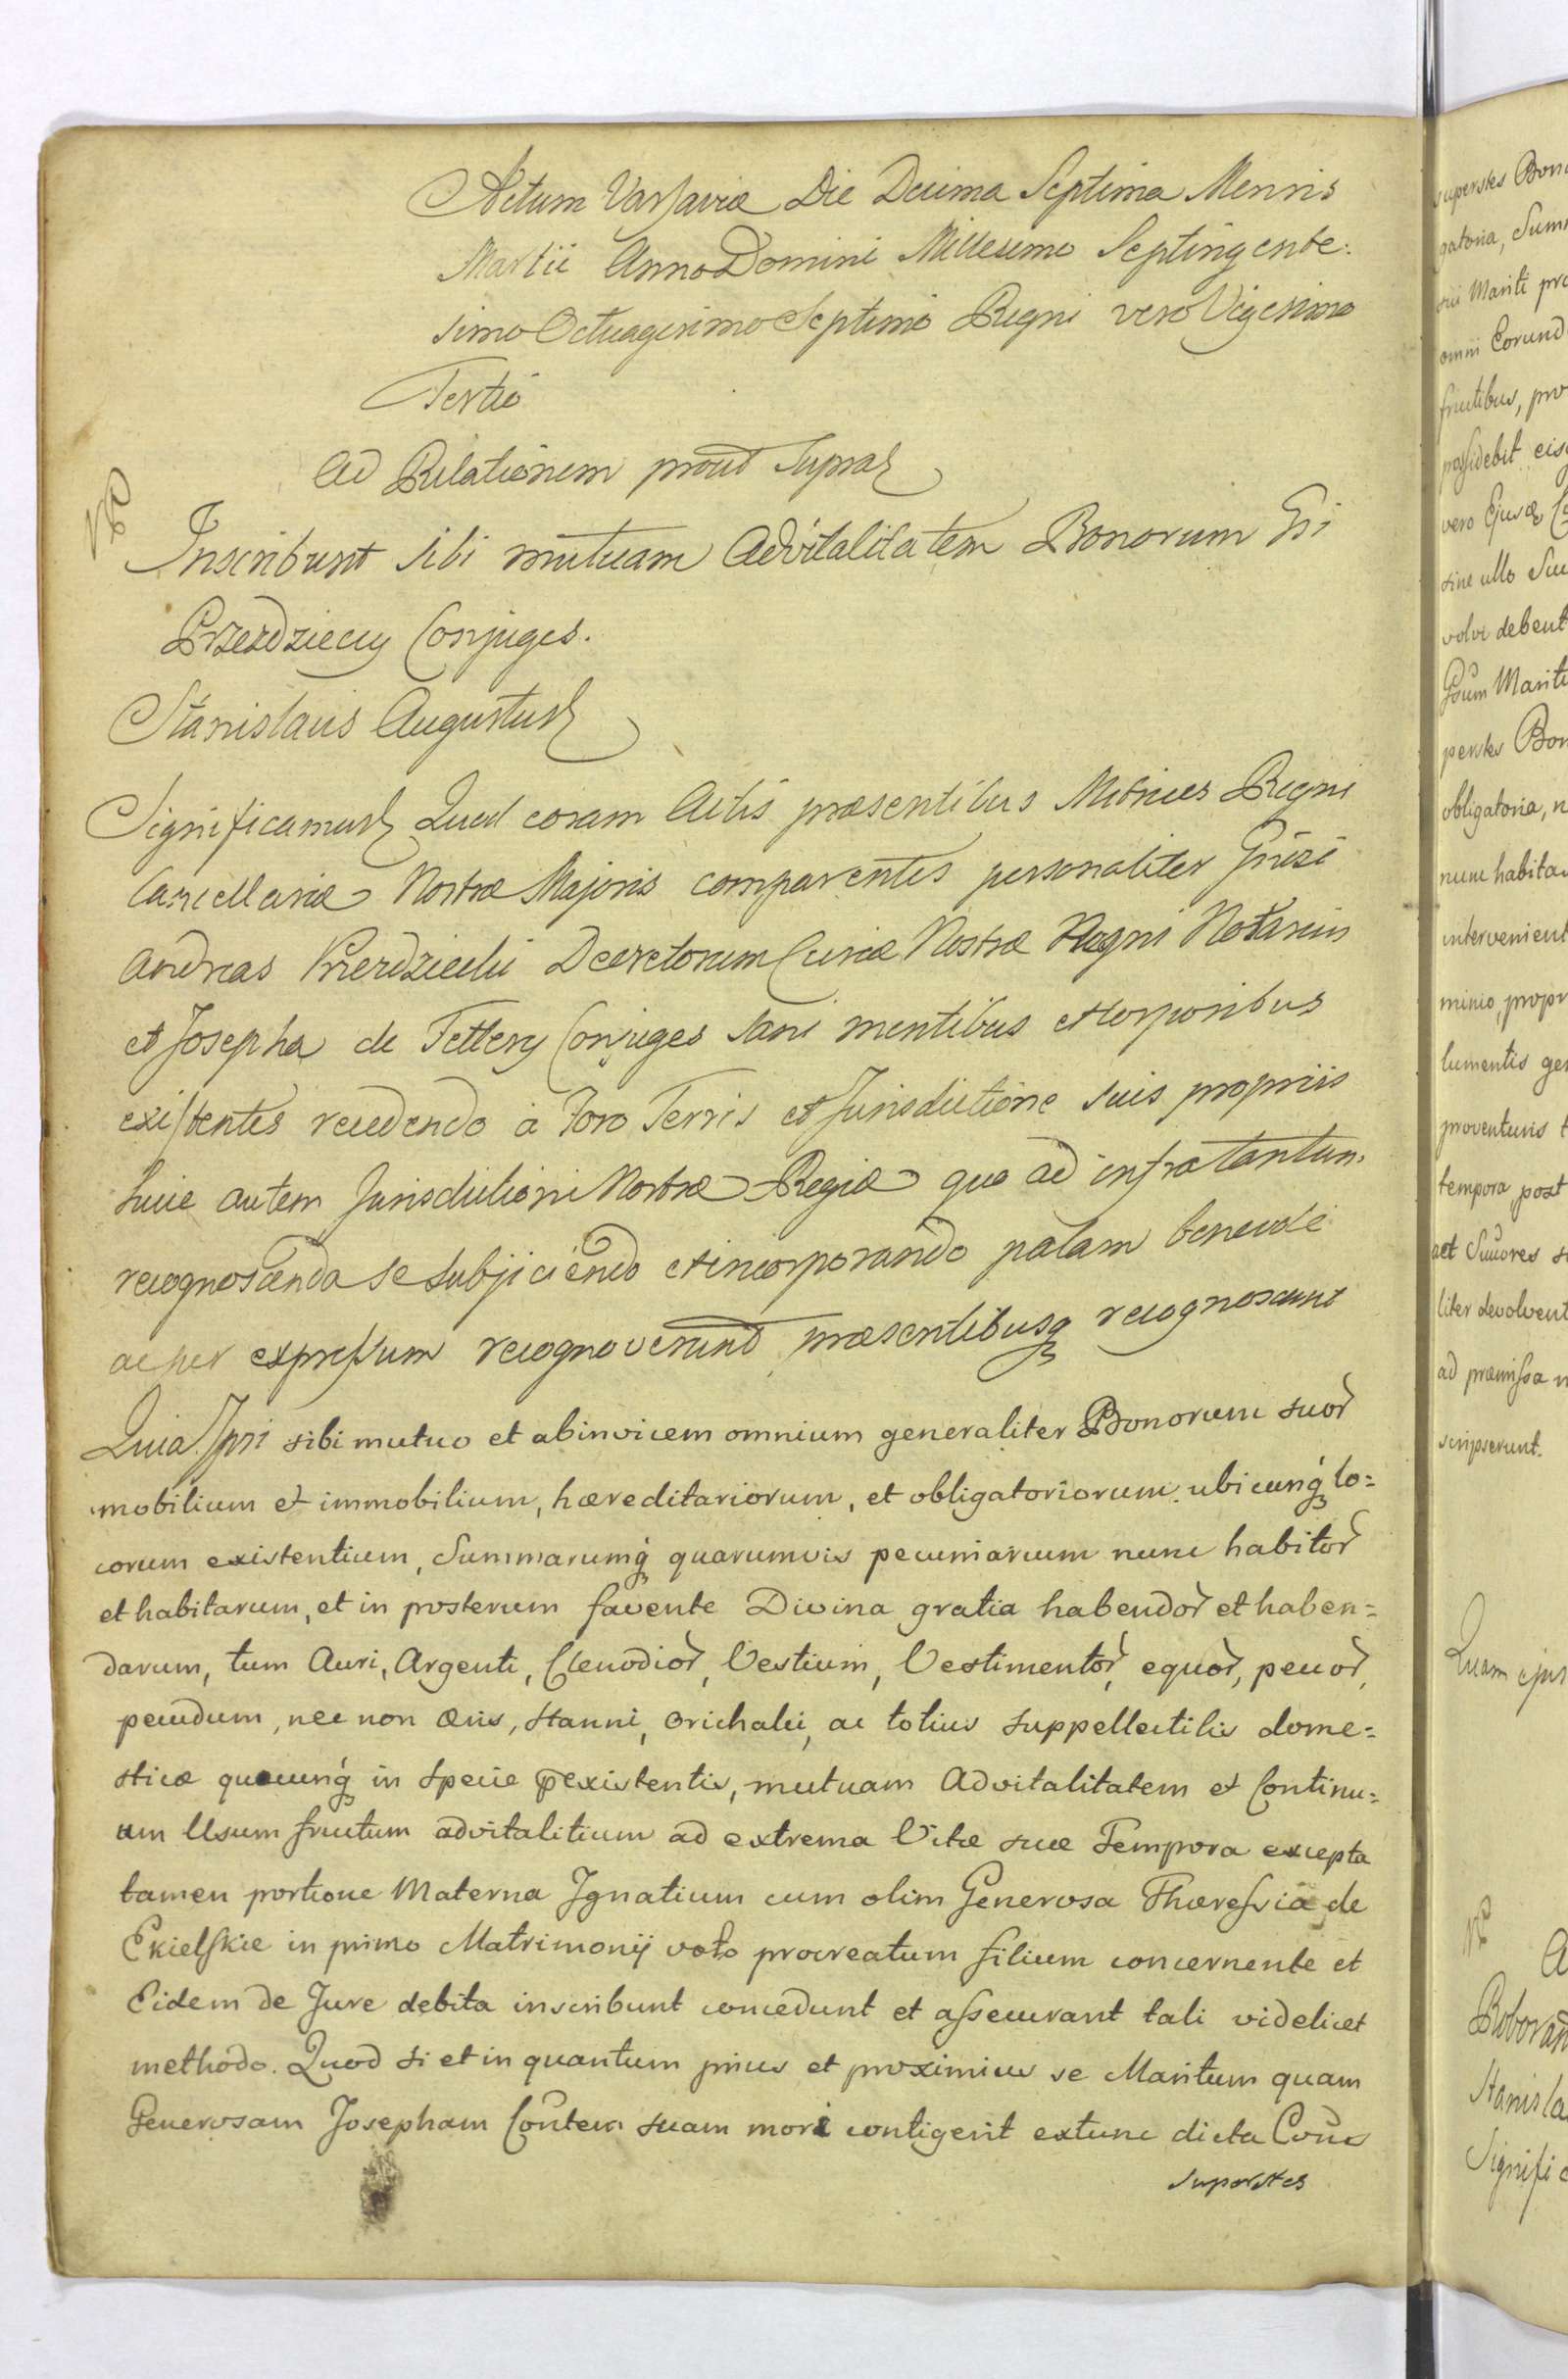 Actum Varsaviæ Die Decima Septima Mensis
Martii Anno Domini Millesimo Septingente:
simo Octuagesimo Septimo Regni vero Vigesimo
Tertio
Ad Relationem prout supra
NB
Inscribunt sibi mutuam Advitalitatem Bonorum Gsi
Przezdzieccy Conjuges.
Stanislaus Augustus
Significamus Quod coram Actis præsentibus Metrices Regni
Cancellariæ Nostræ Majoris comparentes personaliter Gnësi
Andreas Przezdziecki Decretorum Curiæ Nostræ Regni Notarius
et Josepha de Tettery Conjuges sani mentibus et corporibus
existentes recedendo à Foro Terris et Jurisdictione suis propriis
huic autem Jurisdictioni Nostræ Regiæ quo ad infra tantum
recognoscenda se subjiciendo et incorporando palam benevole
ac per expressum recognoverunt præsentibusq recognoscunt
Quia Ipsi sibi mutuo et abinvicem omnium generaliter Bonorum suor
mobilium et immobilium, hæreditariorum, et obligatoriorum ubicunq lo=
corum existentium, Summarumq quarumvis pecuniarum nunc habitor
et habitarum, et in posterum favente Divina gratia habendor et haben=
darum, tum Auri, Argenti, Clenodior, Vestium, Vestimentor, equor, pecor,
pecudum, nec non æris, stanni, orichalci, ac totius suppellectilis dome=
sticæ quacunq in specie existentis, mutuam Advitalitatem et Continu=
um Usum fructum advitalitium ad extrema Vitæ suæ Tempora excepta
tamen portione Materna Ignatium cum olim Generosa Thæressia de
Ekielskie in primo Matrimonij voto procreatum filium concernente et
Eidem de Jure debita inscribunt concedunt et assecurant tali videlicet
methodo. Quod si et in quantum prius et proximius se Maritum quam
Generosam Josepham Contem suam mori contigerit extunc dicta Conx
superstes
superstes Bon
gatoria, Sum
sui Mariti pro
omni Eorund
fructibus, pro
possidebit eis
vero Ejusd
sine ullo Suc
volvi debeut
Ipsum Marit
perstes Bon
obligatoria, n
nunc habita
intervenient
minio, propr
lumentis ge
proventuris
tempora post
aet Succores s
liter devolvent
ad præmissa
scripserunt.
Quam ejus
NB
A
Roboran
Stanisla
Signific